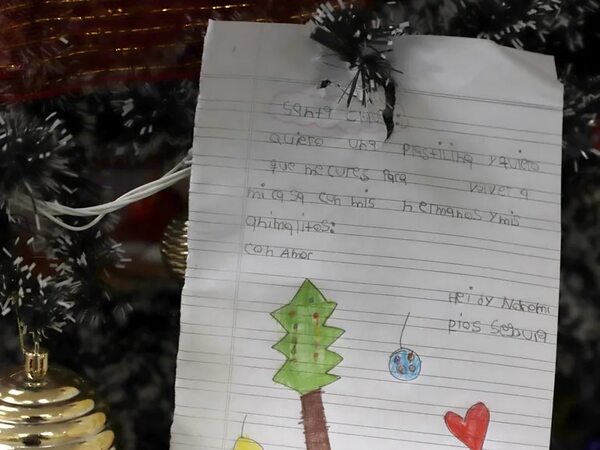 Santa Claus:
quiero una plastilina y quiero
que me cures para volver a
mi casa con mis hermanos y mis
animalitos:
con Amor
Heidy Nohemi